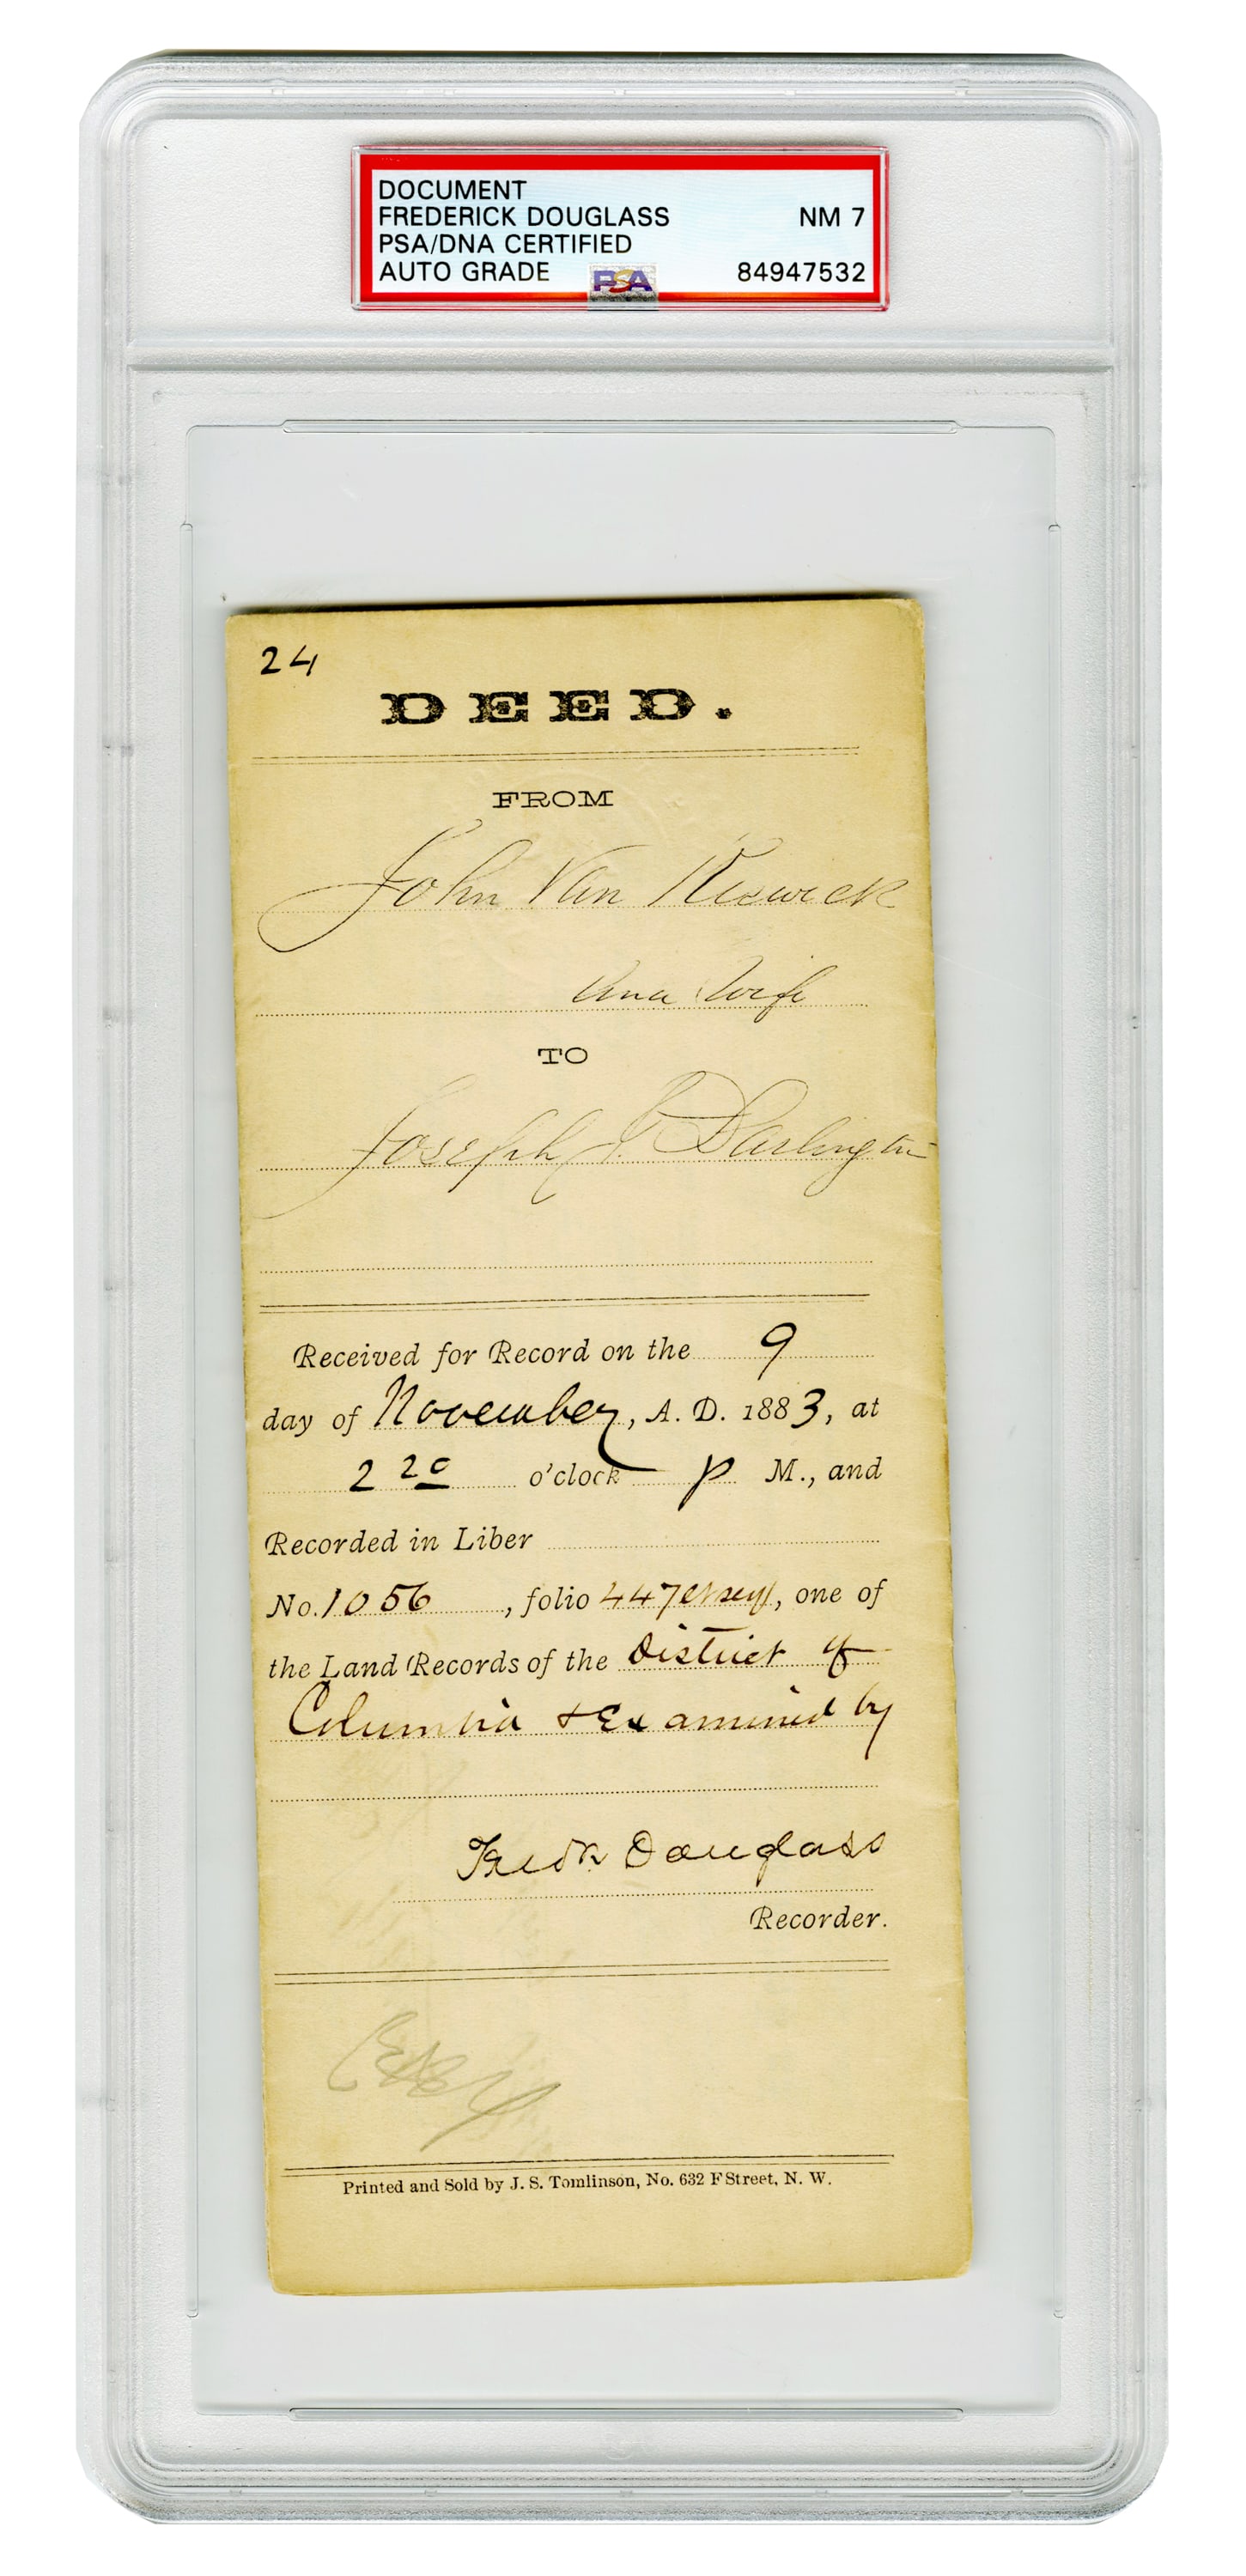 DOCUMENT
FREDERICK DOUGLASS NM 7
PSA/DNA CERTIFIED
AUTO GRADE PSA 84947532
24
DEED.
FROM
John Van Riswick
and Wife
TO
Joseph J. Darlington
Received for Record on the 9
day of November, A. D. 1883, at
2 20 o'clock P M., and
Recorded in Liber
No. 1056, folio 447 et seq, one of
the Land Records of the District of
Columbia & Examined by
Fredk Douglass
Recorder.
Printed and Sold by J. S. Tomlinson, No. 632 F Street, N. W.